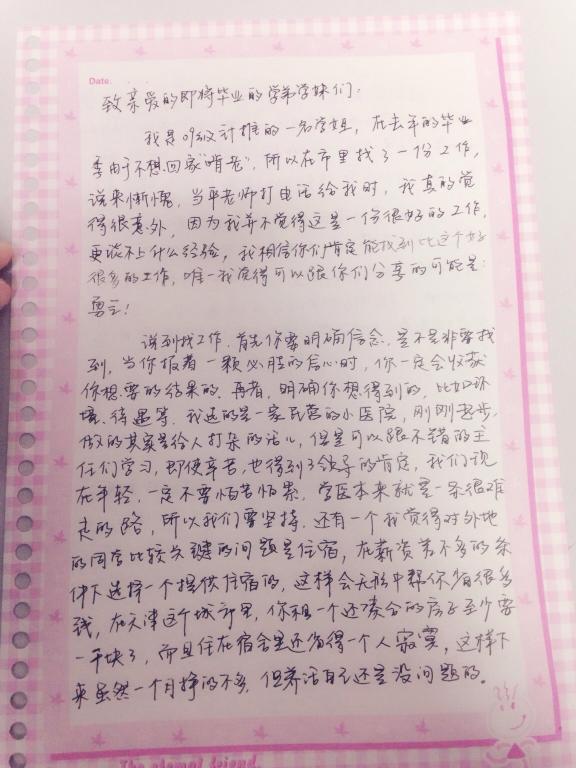 Date.
致亲爱的即将毕业的学弟学妹们:
我是09级针推的一名学姐，在去年的毕业
季由于不想回家"啃老"，所以在市里找了一份工作，
说来惭愧，当平老师打电话给我时，我真的觉
得很意外，因为我并不觉得这是一份很好的工作，
更谈不上什么经验，我相信你们肯定能找到比这个好
很多的工作，唯一我觉得可以跟你们分享的可能是:
勇气!
说到找工作，首先你要明确信念，是不是非要找
到，当你报着一颗必胜的信心时，你一定会收获
你想要的结果的。再者，明确你想得到的，比如环
境、待遇等。我选的是一家民营的小医院，刚刚起步，
做的其实是给人打杂的活儿，但是可以跟不错的主
任们学习，即使辛苦，也得到了领导的肯定，我们现
在年轻，一定不要怕苦怕累，学医本来就是一条很难
走的路，所以我们要坚持，还有一个我觉得对外地
的同学比较关键的问题是住宿，在薪资差不多的条
件下选择一个提供住宿的，这样会无形中帮你省很多
钱，在天津这个城市里，你租一个还凑合的房子至少要
一千块了，而且住在宿舍里还省得一个人寂寞，这样下
来虽然一个月挣的不多，但养活自己还是没问题的。
The eternal friend.